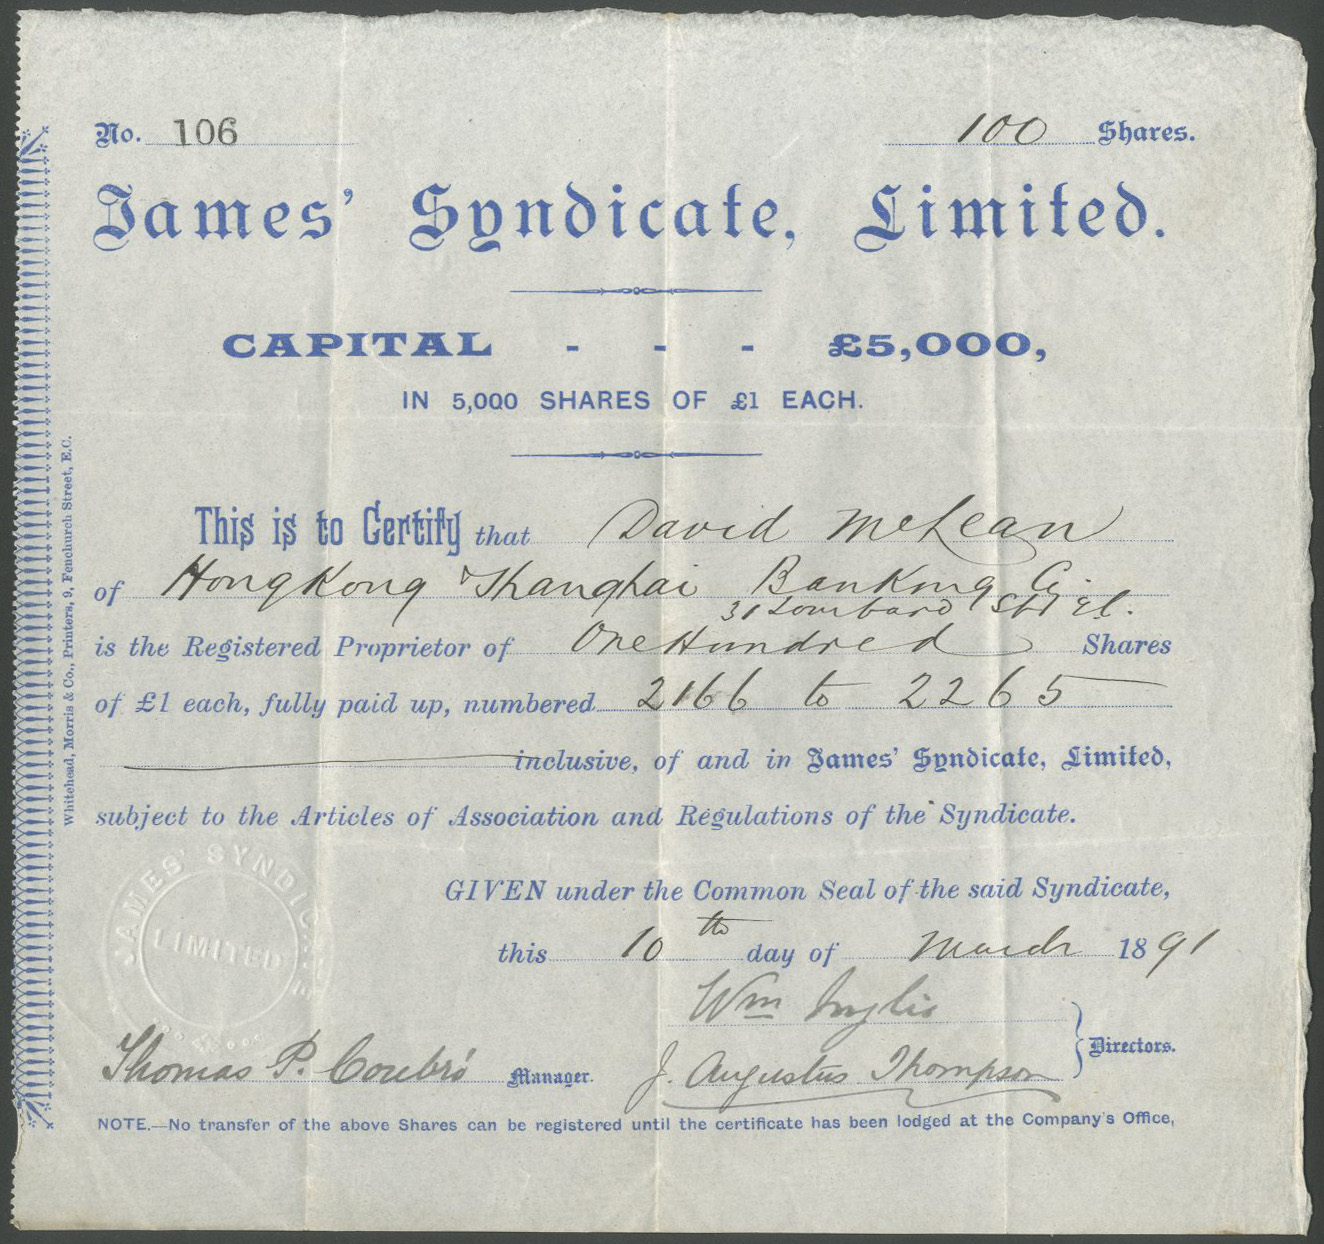 No. 106 100 Shares.
James' Syndicate, Limited.
CAPITAL - - - £5,000,
IN 5,000 SHARES OF £1 EACH.
This is to Certify that David McLean
of HongKong & Shanghai Banking Co.
31 Lombard St E.C.
is the Registered Proprietor of One Hundred Shares
of £1 each, fully paid up, numbered 2166 to 2265
inclusive, of and in James' Syndicate, Limited,
subject to the Articles of Association and Regulations of the Syndicate.
GIVEN under the Common Seal of the said Syndicate,
this 10th day of March 1891
Wm Inglis
Directors.
Thomas P. Manager. J. Augustus Thompson
NOTE.—No transfer of the above Shares can be registered until the certificate has been lodged at the Company's Office,
Whitehead, Morris & Co., Printers, 9, Fenchurch Street, E.C.
JAMES' SYNDICATE
LIMITED